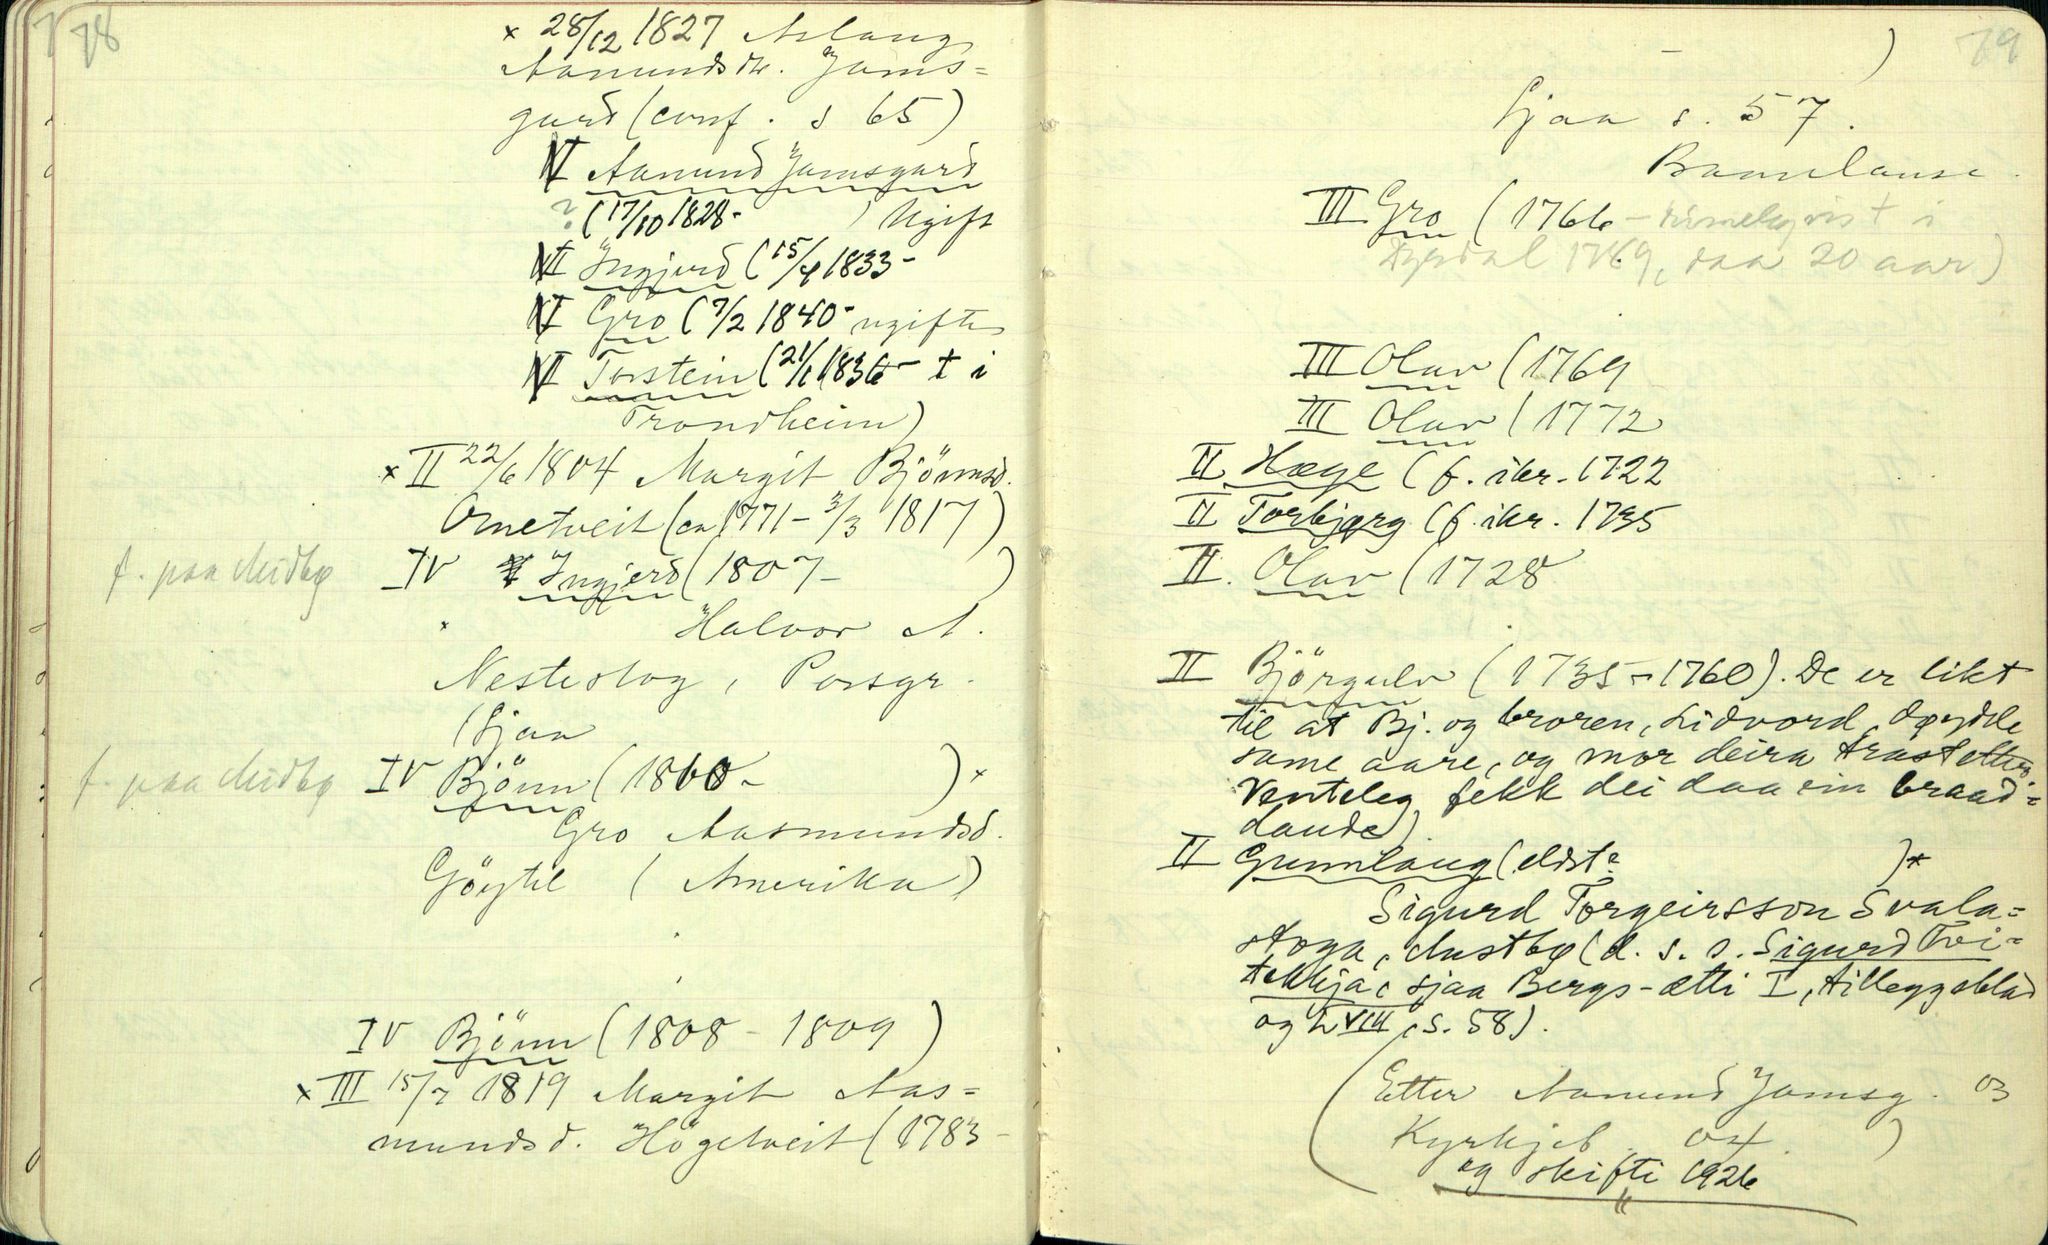 78
× 28/12 1827 Aslaug
Aamundsdtr. Jams=
gard (conf. s 65)
VI Aamund Jamsgard
? (17/10 1828- ) Ugift
VI Ingjerd (15/4 1833-
VI Gro (7/2 1840- ugift
VI Torstein (21/1 1836- † i
Trondheim)
× II 22/6 1804 Margit Bjönnsd.
Ornetveit (ca 1771 - 3/3 1817)
f. paa Midbø IV Ingjerd (1807- )
× Halvor A.
Nestestog, Porsgr.
(Sjaa
f. paa Midbø IV Bjönn (1810- ) ×
Gro Aasmundsd.
Göytil (Amerika)
IV Bjönn (1808 - 1809)
× III 15/7 1819 Margit Aas=
mundsd. Högetveit (1783-
79
- )
Sjaa s. 57.
Barnlause.
III Gro (1766 - i
1789, daa 20 aar)
III Olav (1769
III Olav (1772
II Hæge (f. ikr. 1722
II Torbjørg (f. ikr. 1735
II. Olav (1728
II Björgulv (1735 - 1760). De er likt
til at Bj. og broren, Lidvord, døydde
same aare, og mor deira trast etter.
Venteleg fekk dei daa ein braad=
daude).
II Gunnlaug (eldst? ) ×
Sigurd Torgeirsson Svala=
stoga, Austbø (d. s. s. Sigurd Tvi=
tekkja, sjaa Bergs-ætti I, tilleggsblad
og L VIII, s. 58).
(Etter Aamund Jamsg. og
Kyrkjeb. og )
og skifti 1926